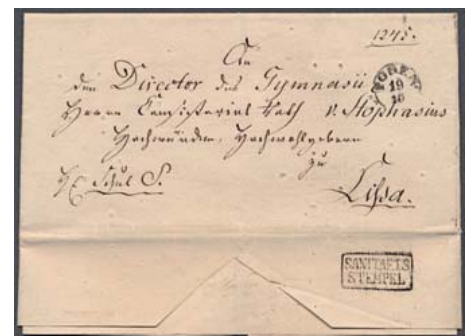 1245.
An
den Director des Gymnasii
Herrn Consistorial Rath v. Stöphasius
Hochwürden, Hochwohlgeboren
zu
Lissa.
Schul S.
POSEN
19
10
SANITAETS
STEMPEL